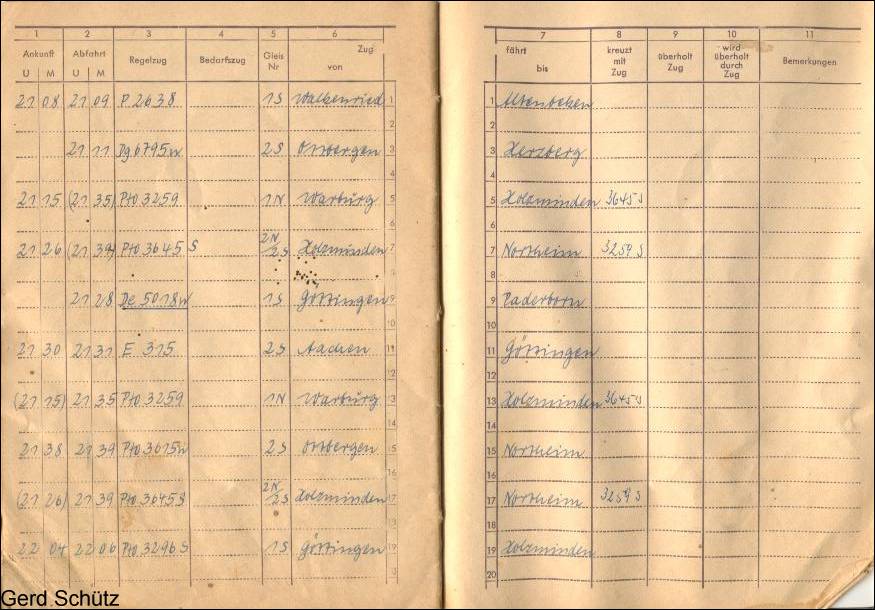 1 2 3 4 5 6 7 8 9 10 11
Ankunft Abfahrt Regelzug Bedarfszug Gleis Nr Zug von fährt bis kreuzt mit Zug überholt Zug wird überholt durch Zug Bemerkungen
U M U M
21 08 21 09 P 2638 1S Walkenried 1 1 Altenbeken
2 2
21 11 Dg 6795 w 2S Ottbergen 3 3 Herzberg
4 4
21 15 (21 35) Pto 3259 1N Warburg 5 5 Holzminden 3645 S
6 6
21 26 (21 39) Pto 3645 S 2N/2S Holzminden 7 7 Northeim 3259 S
8
21 28 De 5018 w 1S Göttingen 9 9 Paderborn
10 10
21 30 21 31 E 315 2S Aachen 11 11 Göttingen
12 12
(21 15) 21 35 Pto 3259 1N Warburg 13 13 Holzminden 3645 S
14 14
21 38 21 39 Pto 3615 w 2S Ottbergen 15 15 Northeim
16 16
(21 26) 21 39 Pto 3645 S 2N/2S Holzminden 17 17 Northeim 3259 S
18
22 04 22 06 Pto 3296 S 1S Göttingen 19 19 Holzminden
20
Gerd Schütz